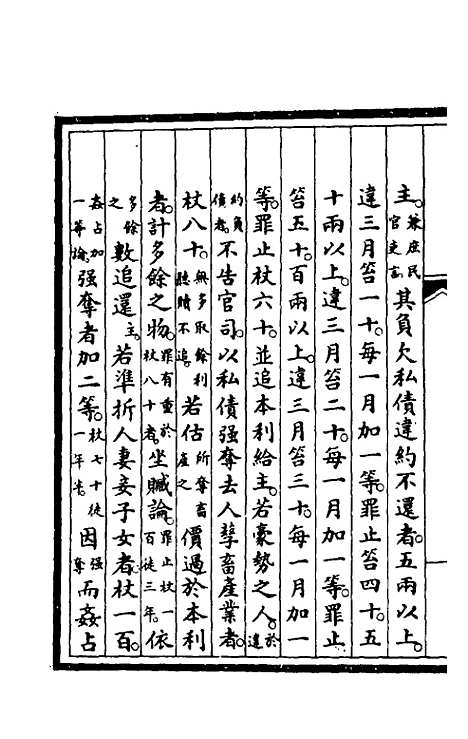 主。兼庶民官吏言其負欠私債違約不還者。五兩以上。
違三月笞一十。每一月加一等。罪止笞四十。五
十兩以上。違三月笞二十。每一月加一等。罪止
笞五十。百兩以上。違三月笞三十。每一月加一
等。罪止杖六十。並追本利給主。若豪勢之人。於違
約負債者。不告官司。以私債強奪去人孳畜產業者。
杖八十。無多取餘利聽贖不追。若估所奪畜產之價過於本利
者。計多餘之物。罪有重於杖八十者。坐贓論。罪止杖一百徒三年。依
多餘之數追還主。若準折人妻妾子女者。杖一百。
姦占加一等論。強奪者加二等。杖七十徒一年半。因強奪而姦占